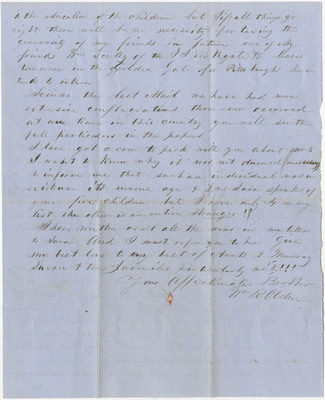 to the education of the children but if all things go
right there will be no necessity for taxing the
generosity of my friends in future one of my
friend Wm of the I I Southgate the leaves
tomorrow in the Golden Gate for he in
tends to return
Since the last Mail we have had more
extensive conflagrations than ever occurred
at one time in this country you will see the
full particulars in the papers
I have got a crow to pick with you about No 5
I want to know why it was not deemed necessary
to inform me that such an individual was in
existence its name age &c Sara speaks of
our five children but I have only 4 in my
list the other is an entire stranger !!
I have written about all the news in my letter
to Sara And I must refer you to her Give
my best love to my best of Aunts & Murray
Susan & the Juveniles particularly No 5 !!!
Your Affectionate Brother
Wm R Olden